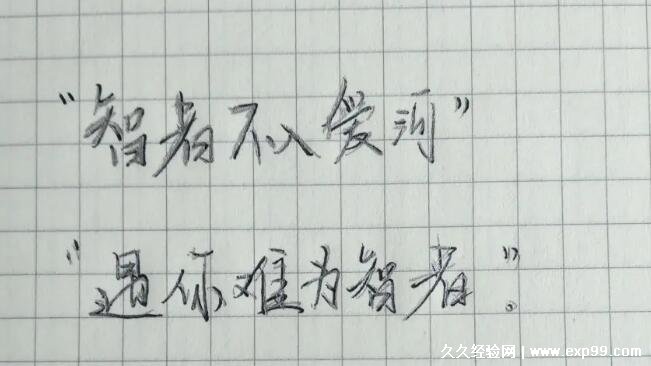 “智者不入爱河”
“遇你难为智者。”
久久经验网 | www.exp99.com